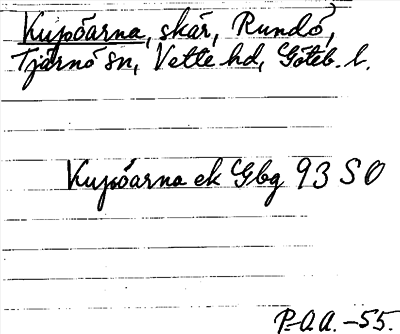 Kupöarna, skär, Rundö,
Tjärnö sn, Vette hd, Göteb. l.
Kupöarna ek Gbg 93 SO
P.-A.A. -55.